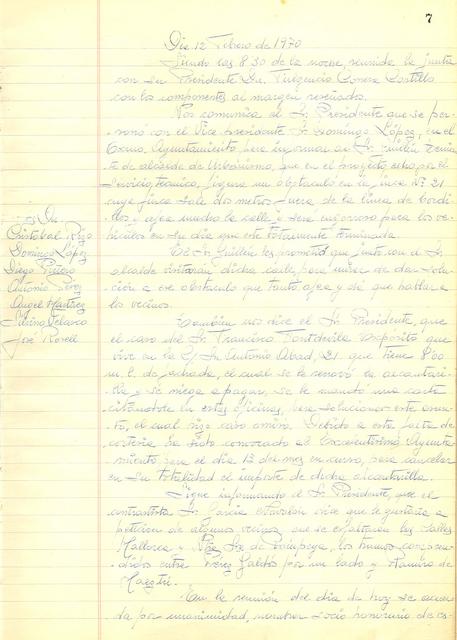 7
Dia 12 Febrero de 1970
Siendo las 8'30 de la noche, reunida la junta
con su Presidente Sr. Fulgencio Conesa Costillo
con los componentes al margen reseñados.
Nos comunica el Sr. Presidente que se per-
sonó con el Vice-presidente Sr. Domingo López, en el
Excmo. Ayuntamiento para informar al Sr. Guillén Tenien-
te de alcalde de Urbanismo, que en el proyecto echo por el
Servicio técnico, figura un obstáculo en la finca Nº 21
cuya finca sale dos metros fuera de la línea de bordi-
llos y afea mucho la calle y será engorroso para los ve-
hículos en su día que este totalmente terminada.
El Sr. Guillén les prometió que junto con el Sr.
alcalde visitarían dicha calle, para mirar de dar solu-
ción a ese obstáculo que tanto afea y da que hablar a
los vecinos.
También nos dice el Sr. Presidente, que
el caso del Sr. Francisco Fontdevila Expósito que
vive en la C/ Sn. Antonio Abad, 21 que tiene 8'00
m. l. de fachada, el cual se le renovó la alcantari-
lla y se niega a pagar, se le mandó una carta
citándole en estas oficinas, para solucionar este asun-
to, el cual hizo caso omiso. Debido a esta falta de
cortesía ha sido convocado al Excelentísimo Ayunta-
miento para el día 13 del mes en curso, para cancelar
en su totalidad el importe de dicha alcantarilla.
Sigue informando el Sr. Presidente, que el
contratista Sr. García dice que le gustaría a
petición de algunos vecinos que se asfaltaran las calles
Mallorca y Ntra. Sra. de Pompeya, los tramos compren-
didos entre Pérez Galdós por un lado y Ramiro de
Maeztu.
En la reunión del día de hoy se acuer-
da por unanimidad, nombrar socio honorario de es-
Cristóbal Rizo
Domingo López
Diego Piñero
Antonio Pérez
Angel Martínez
Silvino Velasco
José Rosell